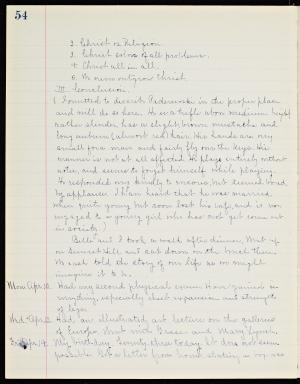 54
2. Christ or Religion
3. Christ solves all problems.
4. Christ all in all.
5. We never outgrow Christ
III Conclusion.
(I omitted to describe Paderewski in the proper place
and will do so here. He is a trifle above medium height
rather slender, has a slight brown mustache and
long auburn (almost red) hair. His hands are very
small for a man and fairly fly over the keys. His
manner is not at all affected. He plays entirely without
notes, and seems to forget himself while playing.
He responded very kindly to encores, but seemed bored
by applause. I have heard that he was married
when quite young but soon lost his wife, and is now
engaged to a young girl who has not yet come out
in society.)
Belle and I took a walk after dinner. Went up
on Sunset Hill and sat down on the bench there
We each told the story of our life as we might
imagine it to be.
Mon. Apr. 10. Had my second physical exam. Have gained in
everything, especially chest expansion and strength
of legs.
Wed. Apr. 12 Had an illustrated art lecture on the galleries
of Europe. Went with Grace and Mary Lynch.
Fri. Apr. 14. My birthday. Twenty three today. It does not seem
possible. Got a letter from home stating